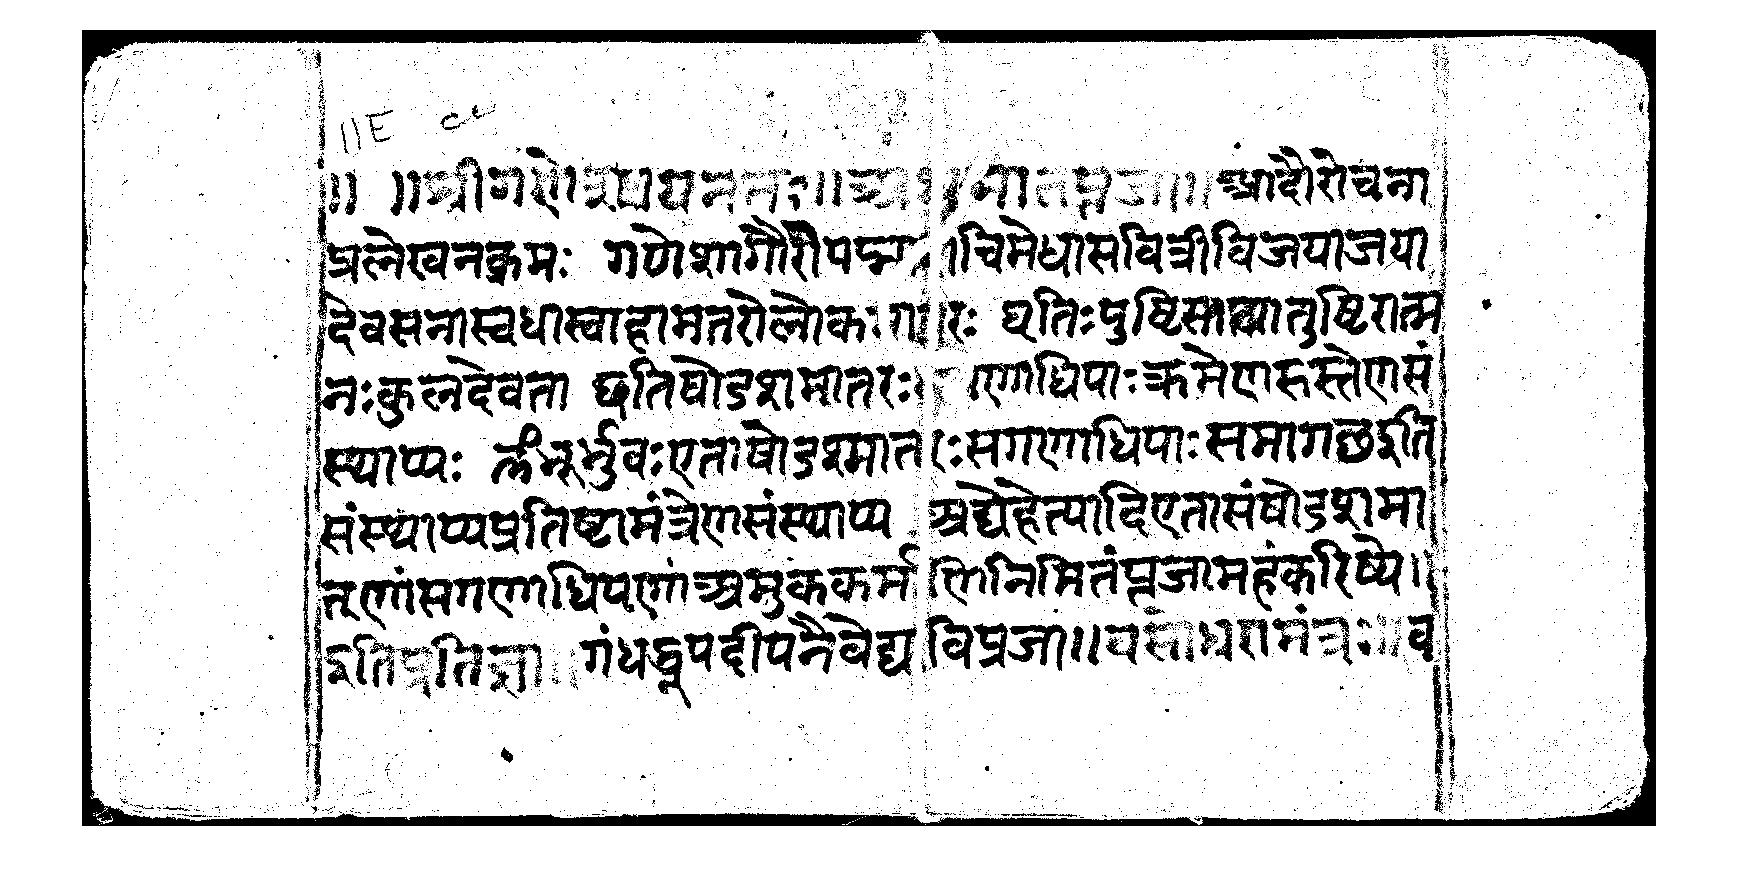 ॥ ॥श्रीगणेशायनमः॥ ॥आदौरोचना
प्रलेखनक्रमः गणेशागौरीपद्मा चिमेधासवित्रीविजयाजया
देवसनास्वधास्वाहामतरोलोक रः धृतिःपुष्टिस्तथातुष्टिरात्म
नःकुलदेवता इतिषोडशमातरः णाधिपाःक्रमेणहस्तेणसं
स्थाप्यः ॐभूर्भुवःएताषोडश्मातरःसगणाधिपाःसमागछइति
संस्थाप्यप्रतिष्टामंत्रेणसंस्थाप्य अद्येहेत्यादिएतासंषोडशमा
तृणांसगणाधिपणांअमुककर्मा निमितंपूजामहंकरिष्ये॥
इतिप्रतिज्ञा॥गंधधूपदीपनैवेद्य विप्रजा॥ मंत्रः॥व